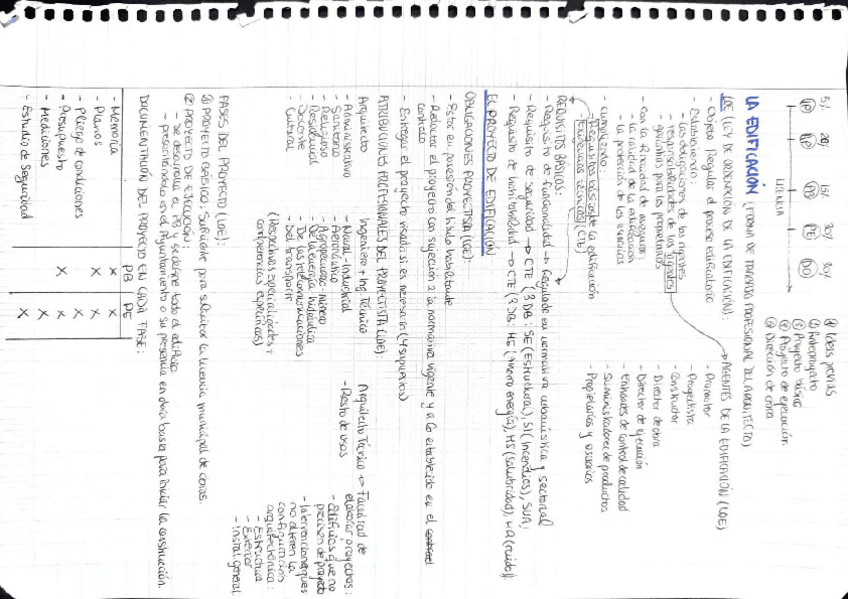 5% 20% 15% 30% 30%
IP AP PB PE DO
LICENCIA
① Ideas previas
② Anteproyecto
③ Proyecto básico
④ Proyecto de ejecución
⑤ Dirección de obra
LA EDIFICACIÓN (FORMA DE TRABAJO PROFESIONAL DEL ARQUITECTO)
LOE (LEY DE ORDENACIÓN DE LA EDIFICACIÓN):
- Objeto: Regular el proceso edificatorio
- Estableciendo:
- las obligaciones de los agentes
- responsabilidades de los agentes
- garantías para los propietarios
- con la finalidad de asegurar:
- la calidad de la edificación
- la protección de los usuarios
- cumpliendo:
- Requisitos básicos de la edificación
Exigencias técnicas (CTE)
AGENTES DE LA EDIFICACIÓN (LOE)
- Promotor
- Proyectista
- Constructor
- Director de obra
- Director de ejecución
- Entidades de control de calidad
- Suministradores de productos
- Propietarios y usuarios
REQUISITOS BÁSICOS:
- Requisito de funcionalidad → Regulado en normativa urbanística y sectorial
- Requisito de seguridad → CTE (3 DB: SE (Estructuras), SI (Incendios), SUA)
- Requisito de habitabilidad → CTE (3 DB: HE (Ahorro energía), HS (Salubridad), HR (ruido))
EL PROYECTO DE EDIFICACIÓN
OBLIGACIONES PROYECTISTA (LOE):
- Estar en posesión del título habilitante
- Redactar el proyecto con sujeción a la normativa vigente y a lo establecido en el
contrato
- Entregar el proyecto visado si es necesario (4 supuestos)
ATRIBUCIONES PROFESIONALES DEL PROYECTISTA (LOE):
Arquitecto
- Administrativo
- Sanitario
- Religioso
- Residencial
- Docente
- Cultural
Ingeniero + Ing. Técnico
- Naval - industrial
- Aeronáutico
- Agropecuario - minero
- De la energía - hidráulica
- De las telecomunicaciones
- Del transporte
(Respectivas especialidades y
competencias específicas)
Arquitecto Técnico → Facultad de
elaborar proyectos:
- Resto de usos
- Edificios que no
precisen de proyecto
- Intervenciones que
no alteren la
configuración
arquitectónica:
- Estructura
- Exterior
- Instal. general
FASES DEL PROYECTO (LOE):
① PROYECTO BÁSICO: Suficiente para solicitar la licencia municipal de obras.
② PROYECTO DE EJECUCIÓN:
- Se desarrolla el PB y se define todo el edificio
- presentándolo en el Ayuntamiento o su presencia en obra basta para iniciar la construcción.
DOCUMENTACIÓN DEL PROYECTO EN CADA FASE:
PB PE
- Memoria X X
- Planos X X
- Pliego de condiciones X
- Presupuesto X X
- Mediciones X
- Estudio de Seguridad X